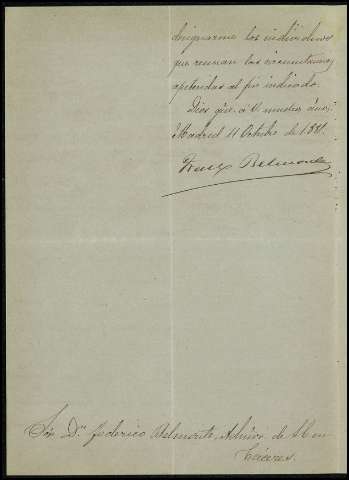 designarme los individuos
que reunan las circunstancias
apetecidas al fin indicado.
Dios gue. á V. muchos años.
Madrid 11 Octubre de 1881.
Belmonte
Sor. Dn. Federico Belmonte, Admor. de
Cáceres.